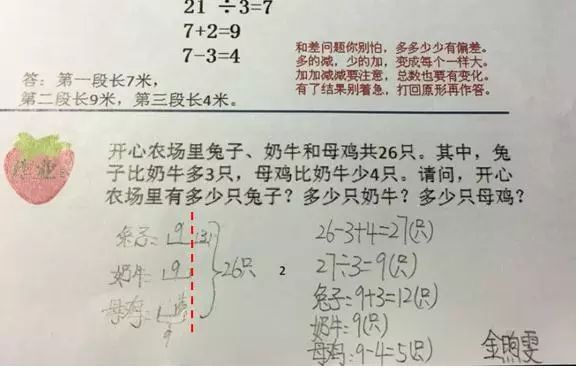 21 ÷3=7
7+2=9
7-3=4
和差问题你别怕，多多少少有偏差。
多的减，少的加，变成每个一样大。
加加减减要注意，总数也要有变化。
有了结果别着急，打回原形再作答。
答：第一段长7米，
第二段长9米，第三段长4米。
作业
开心农场里兔子、奶牛和母鸡共26只。其中，兔
子比奶牛多3只，母鸡比奶牛少4只。请问，开心
农场里有多少只兔子？多少只奶牛？多少只母鸡？
兔子: 9
奶牛: 9
母鸡:
9
26只
2
26-3+4=27(只)
27÷3=9(只)
兔子: 9+3=12(只)
奶牛: 9(只)
母鸡: 9-4=5(只)